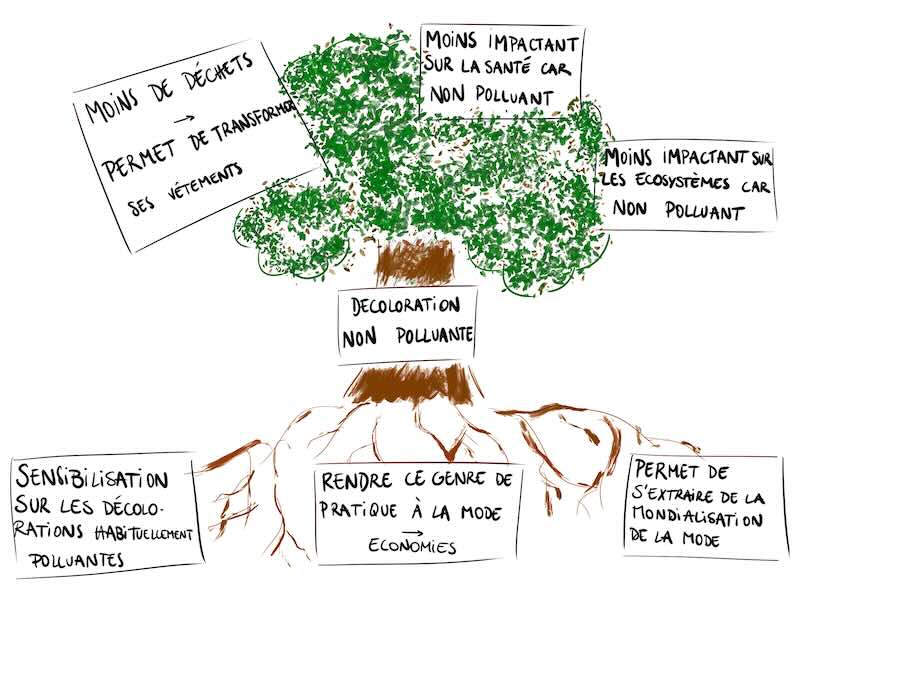 MOINS DE DÉCHETS
→
PERMET DE TRANSFORMER
SES VÉTEMENTS
MOINS IMPACTANT
SUR LA SANTÉ CAR
NON POLLUANT
MOINS IMPACTANT SUR
LES ECOSYSTÈMES CAR
NON POLLUANT
DECOLORATION
NON POLLUANTE
SENSIBILISATION
SUR LES DÉCOLO-
RATIONS HABITUELLEMENT
POLLUANTES
RENDRE CE GENRE DE
PRATIQUE À LA MODE
→
ECONOMIES
PERMET DE
S'EXTRAIRE DE LA
MONDIALISATION
DE LA MODE